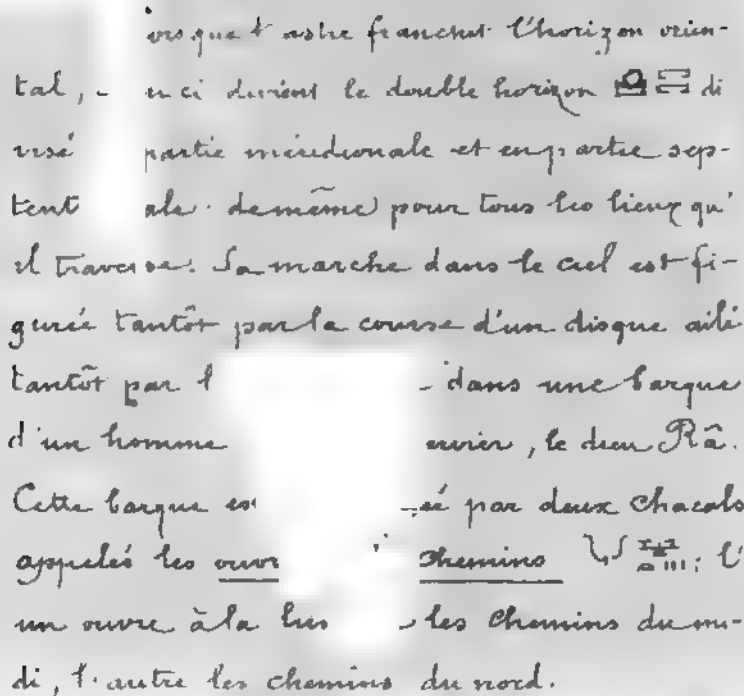 l'astre franchit l'horizon orien-
tal, ci devient le double horizon di
visé partie méridionale et en partie sep-
tent ale. de même pour tous les lieux qu'
il traverse. Sa marche dans le ciel est fi-
gurée tantôt par la course d'un disque ailé
tantôt par l dans une barque
d'un homme ervier, le dieu Râ.
Cette barque es ée par deux chacals
appelés les ouvr chemins ; l'
un ouvre à la lu les chemins du mi-
di, l'autre les chemins du nord.